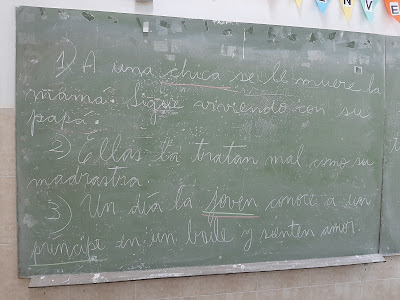 1) A una chica se le muere la
mamá. Sigue viviendo con su
papá.
2) Ellas la tratan mal como su
madrastra.
3) Un día la joven conoce a un
príncipe en un baile y sienten amor.